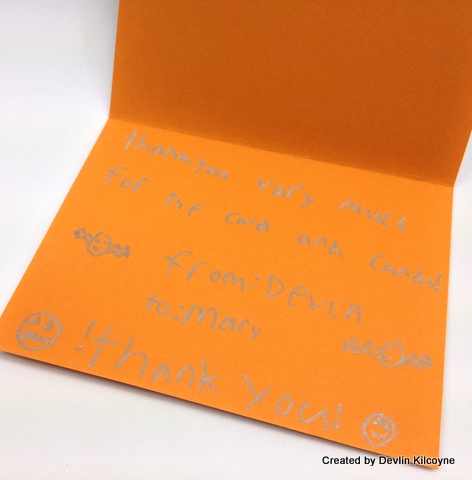 thankyou vary much
for the card and candy!
from: Devlin
to: Mary
!thank you!
Created by Devlin Kilcoyne